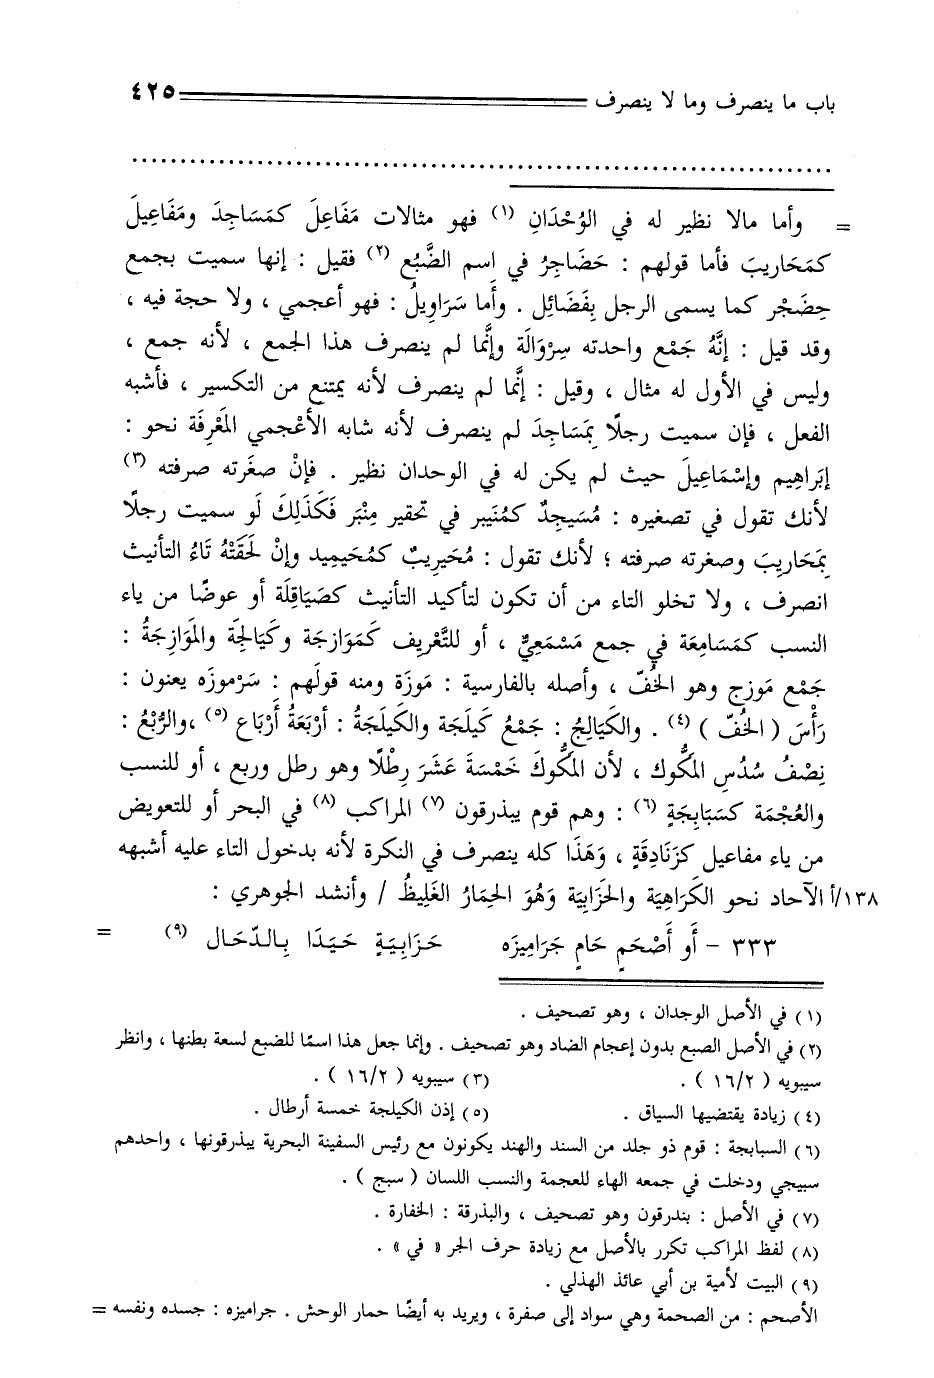 باب ما ينصرف وما لا ينصرف ٤٢٥
= وأما مالا نظير له في الوُحْدَانِ (١) فهو مثالات مَفَاعِلَ كمَسَاجِدَ ومَفَاعِيلَ
كمَحَاريبَ فأما قولهم : حَضَاجِرُ في اسم الضَّبُع (٢) فقيل : إنها سميت بجمع
حِضَجْر كما يسمى الرجل بِفَضَائِل . وأَما سَرَاوِيلُ : فهو أعجمي ، ولا حجة فيه ،
وقد قيل : إنَّهُ جَمْع واحدته سِرْوَالَة وإنَّما لم ينصرف هذا الجمع ، لأنه جمع ،
وليس في الأول له مثال ، وقيل : إنَّما لم ينصرف لأنه يمتنع من التكسير ، فأشبه
الفعل ، فإن سميت رجلًا بِمَسَاجِدَ لم ينصرف لأنه شابه الأعْجمي المَعْرِفَة نحو :
إبَراهِيم وإسْمَاعِيلَ حيث لم يكن له في الوحدان نظير . فإنْ صغَرته صرفته (٣)
لأنك تقول في تصغيره : مُسَيجِدٌ كمُنَيبر في تحقير مِنْبَر فَكَذَلِكَ لَو سميت رجلًا
بِمَحَاريبَ وصغرته صرفته ؛ لأنك تقول : مُحَيريبٌ كمُحَيميد وإنْ لَحَقَتْهُ تَاءُ التأنيث
انصرف ، ولا تخلو التاء من أن تكون لتأكيد التأنيث كصَيَاقِلَة أو عوضًا من ياء
النسب كمَسَامِعَة في جمع مَسْمَعِيٍّ ، أو للتَّعْرِيف كَمَوَازجَة وكَيَالجَة والمَوَازِجَةُ :
جَمْع مَوزج وهو الخُفّ ، وأصله بالفارسية : مَوزَة ومنه قولَهم : سَرْموزَه يعنون :
رَأْسَ ( الخُفّ ) (٤) . والكَيَالِجُ : جَمْعُ كَيلَجَة والكَيلَجَةُ : أَرْبَعَةُ أَرْبَاع (٥) ،والرُّبْعُ :
نِصْفُ سُدُسِ المَكُّوك ، لأن المَكُّوكَ خَمْسَةَ عَشَرَ رِطْلًا وهو رطل وربع ، أو للنسب
والعُجْمَة كسَبَابِجَةٍ (٦) : وهم قوم يبذرقون (٧) المراكب (٨) في البحر أو للتعويض
من ياء مفاعيل كزَنَادِقَةٍ ، وَهَذَا كله ينصرف في النكرة لأنه بدخول التاء عليه أشبهه
١٣٨/أ الآحاد نحو الكَرَاهِيَة والحَزَابِيَة وَهُوَ الحِمَارُ الغَلِيظُ / وأنشد الجوهري :
٣٣٣ - أَو أَصْحَمٍ حَامٍ جَرَامِيزَه حَزَابِيَـةٍ حَيَـدَا بِـالـدّحَال (٩) =
(١) في الأصل الوجدان ، وهو تصحيف .
(٢) في الأصل الصبع بدون إعجام الضاد وهو تصحيف . وإنما جعل هذا اسمًا للضبع لسعة بطنها ، وانظر
سيبويه ( ١٦/٢ ) . (٣) سيبويه ( ١٦/٢ ) .
(٤) زيادة يقتضيها السياق . (٥) إذن الكيلجة خمسة أرطال .
(٦) السبابجة : قوم ذو جلد من السند والهند يكونون مع رئيس السفينة البحرية يبذرقونها ، واحدهم
سبيجي ودخلت في جمعه الهاء للعجمة والنسب اللسان ( سبج ) .
(٧) في الأصل : بندرقون وهو تصحيف ، والبذرقة : الخفارة .
(٨) لفظ المراكب تكرر بالأصل مع زيادة حرف الجر « في » .
(٩) البيت لأمية بن أبي عائذ الهذلي .
الأصحم : من الصحمة وهي سواد إلى صفرة ، ويريد به أيضًا حمار الوحش . جراميزه : جسده ونفسه =